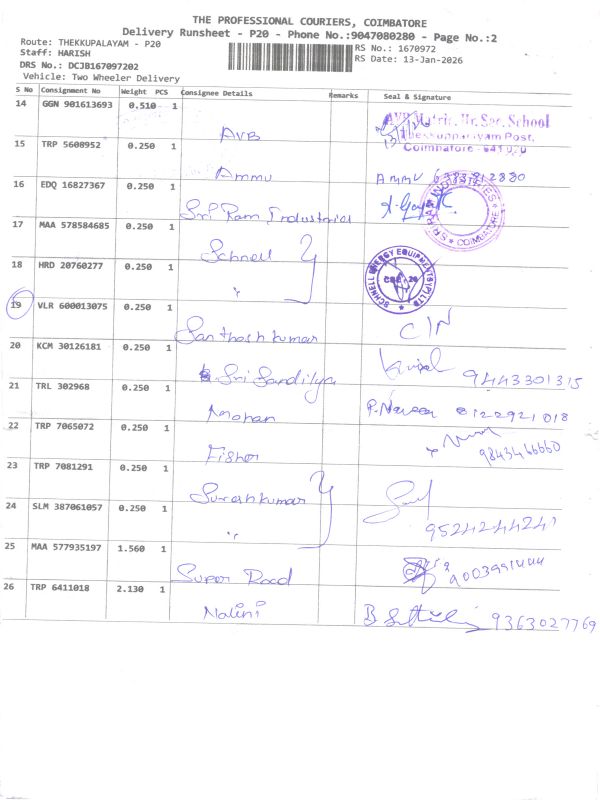 THE PROFESSIONAL COURIERS, COIMBATORE
Delivery Runsheet - P20 - Phone No.:9047080280 - Page No.:2
Route: THEKKUPALAYAM - P20
RS No.: 1670972
Staff: HARISH
RS Date: 13-Jan-2026
DRS No.: DCJB167097202
Vehicle: Two Wheeler Delivery
S No Consignment No Weight PCS Consignee Details Remarks Seal & Signature
14 GGN 901613693 0.510 1 AVB
Matric. Hr. Sec. School
Post,
Coimbatore - 641 020
15 TRP 5608952 0.250 1 Ammu AMMU
16 EDQ 16827367 0.250 1 Sri Ram Industries
SRI RAM INDUSTRIES * COIMBATORE *
17 MAA 578584685 0.250 1 Schnell
SCHNELL ENERGY EQUIPMENTS (P) LTD
CBE - 20
18 HRD 20760277 0.250 1 "
19 VLR 600013075 0.250 1 Santhoshkumar C/N
20 KCM 30126181 0.250 1 Sri Sandilya 9443301315
21 TRL 302968 0.250 1 Amohan P. Naveen 8122921018
22 TRP 7065072 0.250 1 Fisher 9843466660
23 TRP 7081291 0.250 1 Sureshkumar
24 SLM 387061057 0.250 1 " 9524244241
25 MAA 577935197 1.560 1 Super Road
26 TRP 6411018 2.130 1 Nalini 9363027769